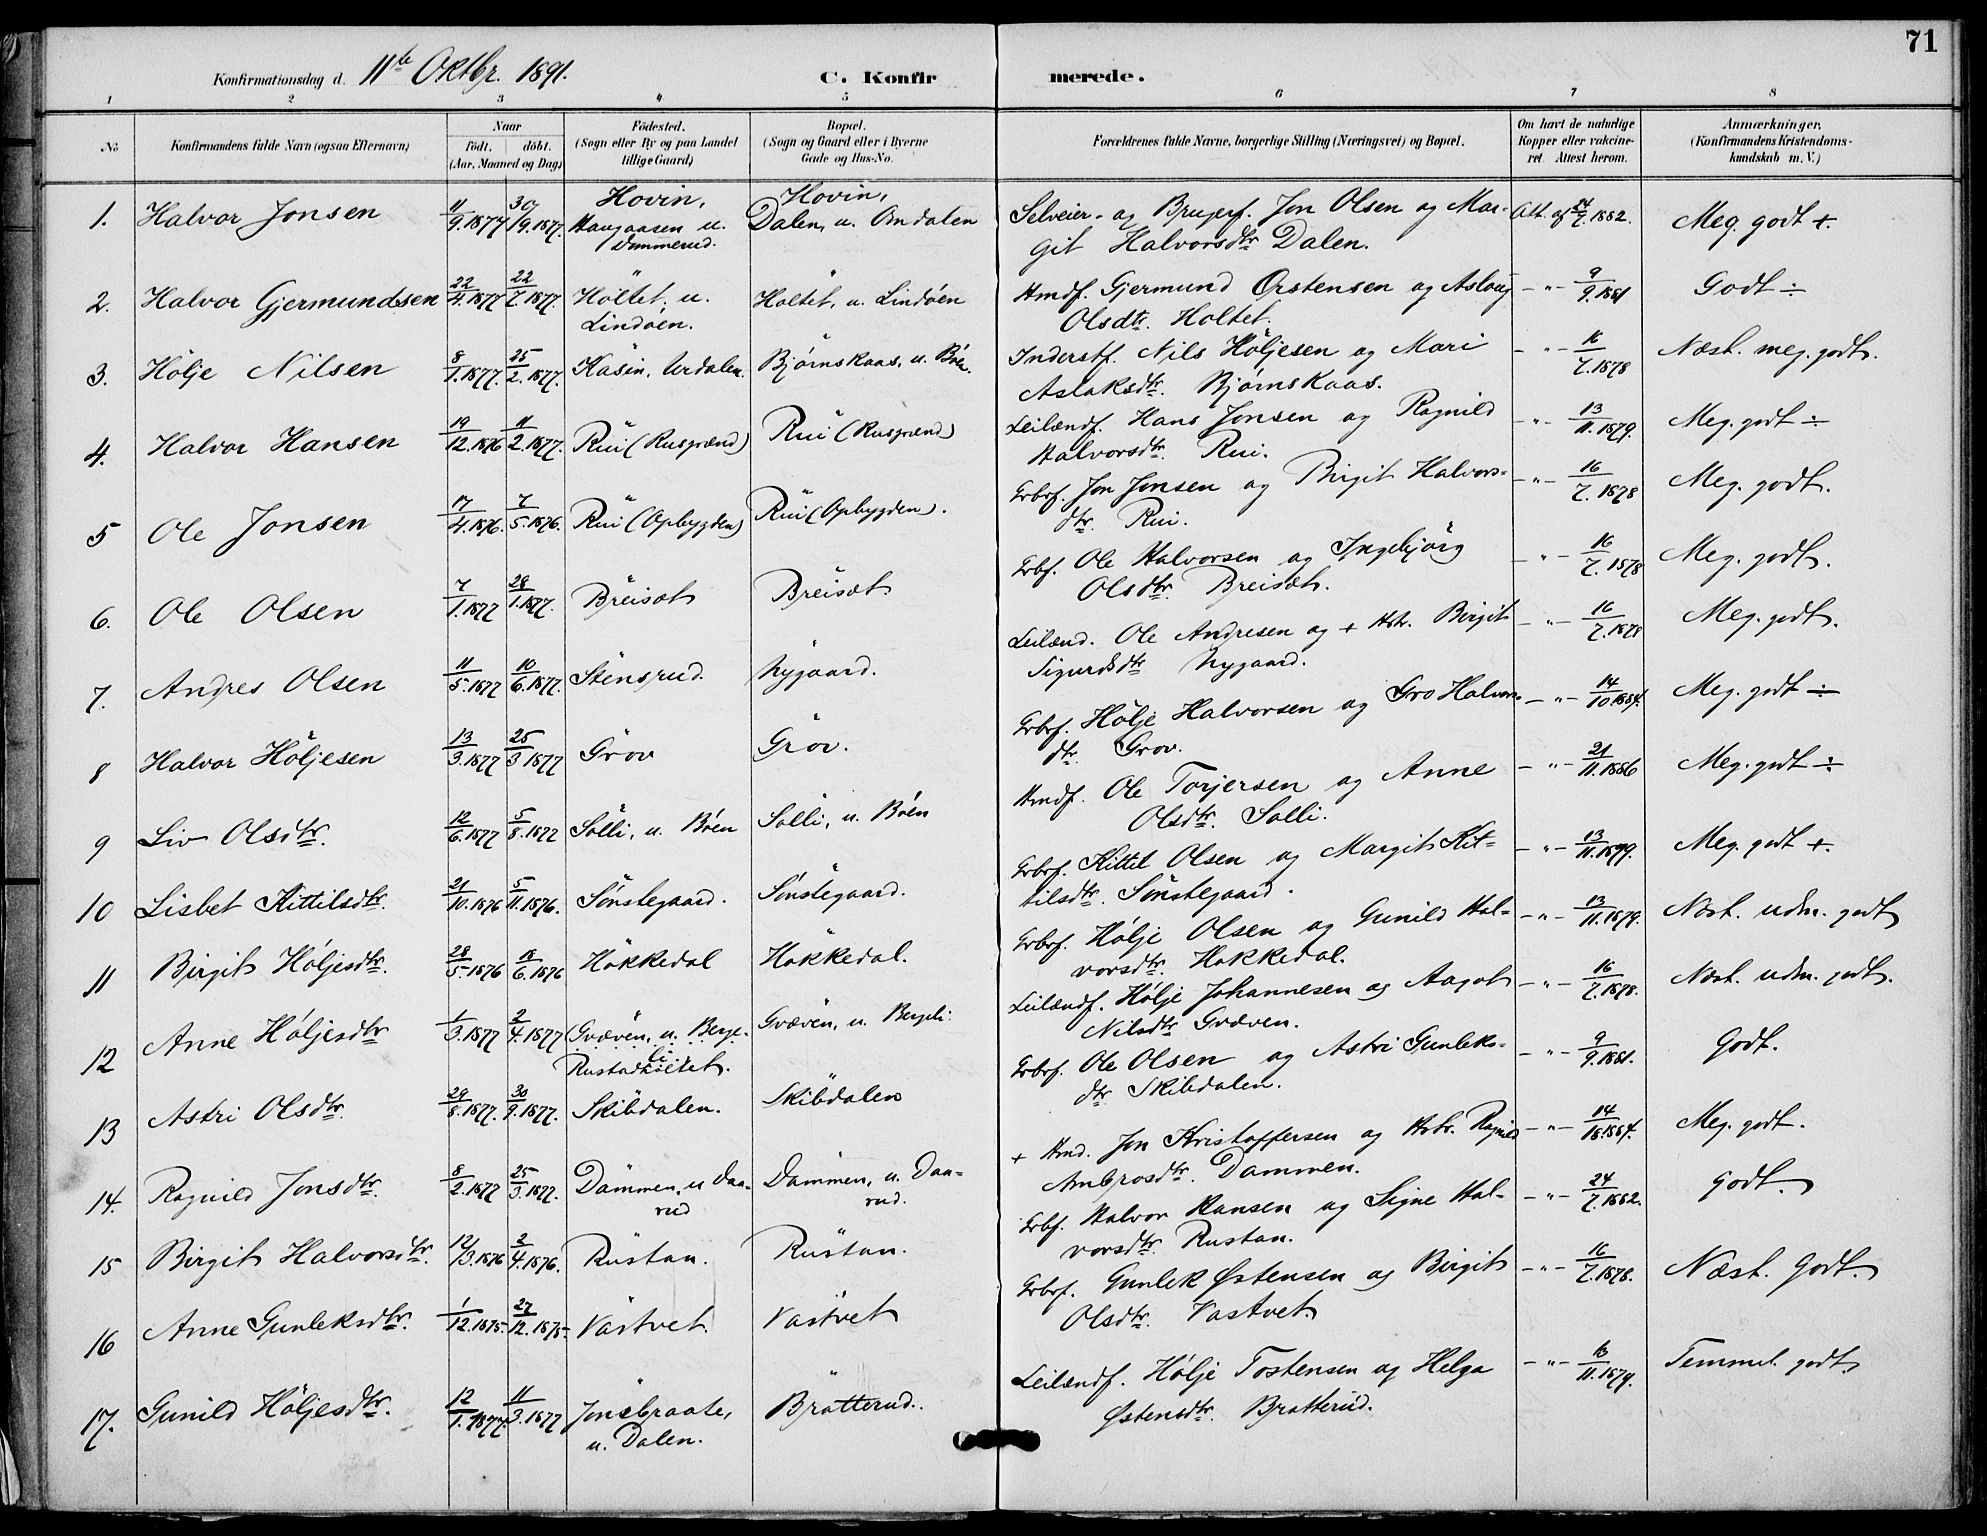 71
Konfirmationsdag d. 11te Oktbr. 1891. C. Konfirmerede.
1 2 3 4 5 6 7 8
No Konfirmandens fulde Navn (ogsaa Efternavn) Naar födt. döbt. (Aar, Maaned og Dag) Födested. (Sogn eller By og paa Landet tillige Gaard) Bopæl. (Sogn og Gaard eller i Byerne Gade og Hus-No. Forældrenes fulde Navne, borgerlige Stilling (Næringsvei) og Bopæl. Om havt de naturlige Kopper eller vakcineret. Attest herom. Anmærkninger. (Konfirmandens Kristendomskundskab m. V.)
1. Halvor Jonsen 11/9.1877 30/9.1877. Hovin, Haugaasen u. Dammerud. Hovin, Dalen, u. Omdalen Selveier- og Brugerf. Jon Olsen og Margit Halvorsdtr Dalen. Att. af 24/7.1882. Meg. godt +.
2. Halvor Gjermundsen 22/4.1877 22/7.1877. Holtet, u. Lindöen. Holtet, u. Lindöen Hmdf. Gjermund Östensen og Aslaug Olsdtr. Holtet. - " - 9/9.1881 Godt ÷
3. Hölje Nilsen 8/1.1877. 25/2.1877. Kasin, Urdalen. Bjørnskaas, u. Böen. Inderstf. Nils Höljesen og Mari Aslaksdtr. Bjørnskaas. - " - 16/7.1878 Næst. meg. godt.
4. Halvor Hansen 19/12.1876 11/2.1877. Rui (Rusgrænd) Rui (Rusgrænd) Leilændf. Hans Jonsen og Ragnild Halvorsdtr. Rui. - " - 13/11.1879. Meg. godt ÷
5 Ole Jonsen 17/4.1876. 7/5.1876. Rui (Opbygden) Rui (Opbygden). Grbrf. Jon Jonsen og Birgit Halvorsdtr. Rui. - " - 16/7.1878 Meg. godt.
6. Ole Olsen 7/1.1877 28/1.1877. Breisæt Breisæt Grbf. Ole Halvorsen og Ingebjörg Olsdtr. Breisæt. - " - 16/7.1878 Meg. godt.
7. Andres Olsen 11/5.1877 10/6.1877. Stensrud. Nygaard. Leilænd. Ole Andresen og + Hstr. Birgit Sigurdsdtr Nygaard. - " - 16/7.1878 Meg. godt.
8 Halvor Höljesen 13/3.1877 25/3 1877 Grov Grov. Grbrf. Hölje Halvorsen og Gro Halvorsdtr. Grov. - " - 14/10.1884. Meg. godt ÷
9 Liv Olsdtr. 12/6.1877 5/8.1877 Solli, u. Böen Solli, u. Böen Hmdf. Ole Torjersen og Anne Olsdtr. Solli. - " - 21/11.1886 Meg. godt ÷
10 Lisbet Kittilsdtr. 21/10.1876 5/11.1876. Sönstegaard. Sönstegaard. Grbrf. Kittil Olsen og Margit Kittilsdtr. Sönstegaard. - " - 13/11.1879. Meg. godt +.
11 Birgit Höljesdtr. 28/5-1876 18/6.1876 Hakkedal Hakkedal. Grbrf. Hölje Olsen og Gunild Halvorsdtr. Hakkedal. - " - 13/11.1879. Næst. udm. godt
12 Anne Höljesdtr 1/3.1877 2/4.1877 (Gvæven, u. Bergeli Rustadholtet. Gvæven, u. Bergeli. Leilændf. Hölje Johannesen og Aagot Nilsdtr Gvæven. - " - 16/7.1878. Næst. udm. godt.
13 Astri Olsdtr. 29/8.1877. 30/9.1877. Skibdalen. Skibdalen Grbrf. Ole Olsen og Astri Gunleksdtr. Skibdalen. - " - 9/9.1881. Godt.
14. Ragnild Jonsdtr. 8/2.1877 25/3.1877. Dammen, u Daarud Dammen, u. Daarud. + Hmd. Jon Kristoffersen og Hstr. Ragnild Ambrosdtr. Dammen. - " - 14/10.1884. Meg. godt.
15 Birgit Halvorsdtr. 12/3.1876 2/4.1876. Rustan. Rustan. Grbf. Halvor Hansen og Signe Halvorsdtr. Rustan. - " - 24/7.1882. Godt.
16 Anne Gunleksdtr. 1/12.1875- 27/12.1875- Vastvet. Vastvet Grbrf. Gunlek Østensen og Birgit Olsdtr. Vastvet. - " - 16/7.1878. Næst. Godt.
17. Gunild Höljesdtr. 12/1.1877. 11/3.1877 Jonsbraate, u. Dalen. Bratterud. Leilændf. Hölje Tostensen og Helga Østensdtr. Bratterud. - " - 13/11.1879. Temmel. godt.